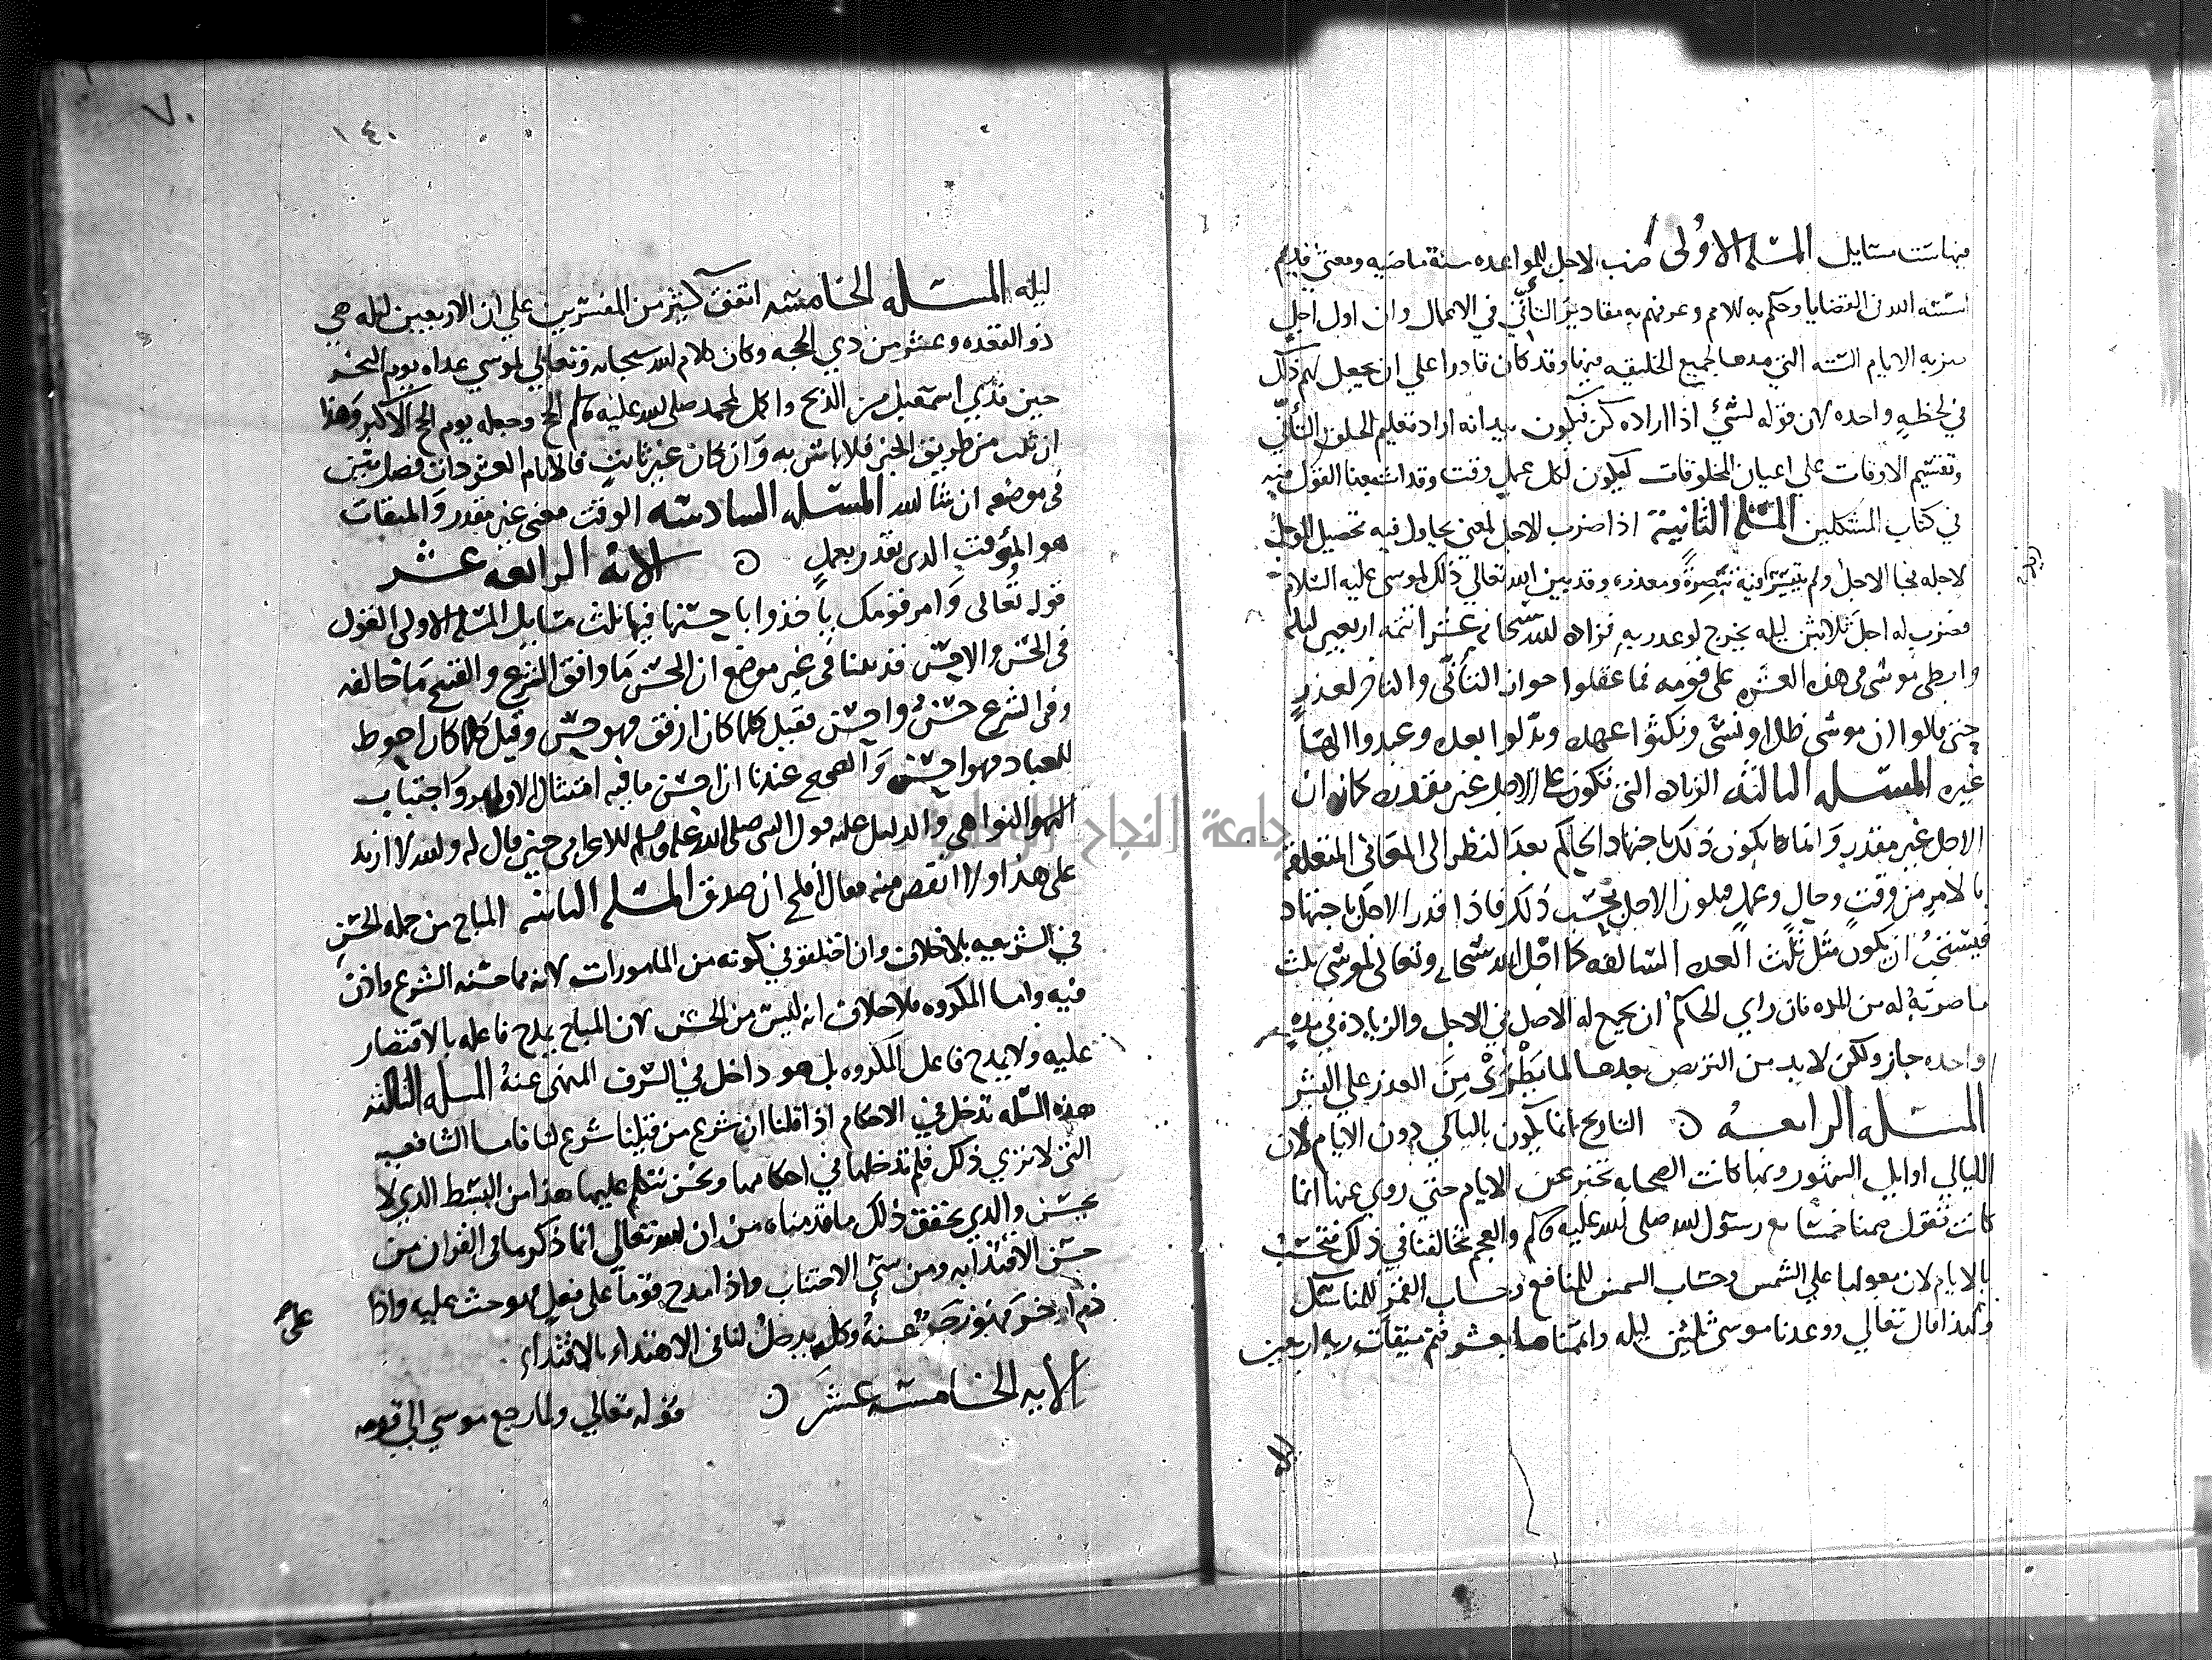 فيها ست مسايل المسلة الاولى ضرب الاجل للمواعده سنة ماضيه ومعنى قديم
اسسه الله في القضايا وحكم به للامم وعرفهم به مقادير التأني في الاعمال وان اول اجل
ضربه الايام الستة التي مدها لجميع الخليقه فيها وقد كان قادرا على ان يجعل لهم ذلك
في لحظه واحده لان قوله لشي اذا اراده كن فيكون بيد انه اراد تعليم الخلق التأني
وتقسيم الاوقات علي اعيان المخلوقات ليكون لكل عمل وقت وقد اشبعنا القول فيه
في كتاب المشكلين المسلة الثانية اذا ضرب الاجل لمعنى يحاول فيه تحصيل المؤجل
لاجله فجا الاجل ولم يتيسر زيد فيه تبصرة ومعذره وقد بين الله تعالي ذلك لموسى عليه السلام
فضرب له اجل ثلاثين ليله يخرج لوعد ربه فزاده الله سبحانه عشرا تتمه اربعين ليله
وابطى موسى في هذه العشره على قومه فما عقلوا جواز التأني والتاخر لعذر
حتى قالوا ان موسى ظل او نسى ونكثوا عهده وبدلوا بعده وعبدوا الها
غيره المسلة الثالثة الزياده التي تكون على الاجل غير مقدره كما ان
الاجل غير مقدر وانما يكون ذلك باجتهاد الحاكم بعد النظر الى المعاني المتعلقة
بالامر من وقت وحال وعمل فيكون الاجل بحسب ذلك فاذا قدر الاجل باجتهاد
فيستحب ان يكون مثل ثلث العده السالفه كما اجل الله سبحانه وتعالى لموسى ثلث
ما ضربه له من المده فان راي الحاكم ان يجمع له الاصل في الاجل والزيادة في مده
واحده جاز ولكن لابد من التربص بعدها لما يطرى من العذر علي البشر
المسلة الرابعه ٥ التاريخ انما يكون بالليالي دون الايام لان
الليالي اوايل الشهور وبها كانت الصحابه تخبر عن الايام حتي روي عنها انها
كانت تقول صمنا خمسا مع رسول الله صلى الله عليه وسلم والعجم تخالفنا في ذلك فتحسب
بالايام لان معولها علي الشمس وحساب الشمس للمنافع وحساب القمر للمناسك
ولهذا قال تعالي ووعدنا موسى ثلثين ليله واتممناها بعشر فتم ميقات ربه اربعين
ليلة
٧٠
١٤٠
ليله المسلة الخامسة اتفق كثير من المفسرين علي ان الاربعين ليله هي
ذو القعده وعشر من ذي الحجه وكان كلام الله سبحانه وتعالي لموسي غداه يوم النحر
حين فدي اسمعيل من الذبح واكمل لمحمد صلى الله عليه وسلم الحج وجعله يوم الحج الاكبر وهذا
ان ثبت من طريق الخبر فلا باس به وان كان غير ثابت فالايام العشر ذات فضل يتبين
في موضعه ان شا الله المسلة السادسة الوقت معنى غير مقدر والميقات
هو الموقت الذى يقدر بعمل ٥ الاية الرابعه عشر
قوله تعالى وامر قومك ياخذوا باحسنها فيها ثلث مسايل المسلة الاولى القول
في الحسن والاحسن قد بينا في غير موضع ان الحسن ما وافق الشرع والقبيح ما خالفه
وفي الشرع حسن واحسن فقيل كلما كان ارفق فهو احسن وقيل كلما كان احوط
للعباد فهو احسن والصحيح عندنا ان احسن ما فيه امتثال الاوامر واجتناب
النواهي والدليل عليه قول النبي صلى الله عليه وسلم للاعرابي حين قال له والله لا ازيد
على هذا ولا انقص منه فقال افلح ان صدق المسلة الثانية المباح من جملة الحسن
في الشريعه بلا خلاف وان اختلفوا في كونه من المامورات لانه مما حسنه الشرع واذن
فيه واما المكروه فلا خلاف انه ليس من الحسن لان المباح يمدح فاعله بالاقتصار
عليه ولا يمدح فاعل المكروه بل هو داخل في السرف المنهي عنه المسلة الثالثة
هذه المسلة تدخل في الاحكام اذا قلنا ان شرع من قبلنا شرع لنا فاما الشافعيه
التي لا تري ذلك فلم تدخلها في احكامها ونحن نتكلم عليها هذا من البسط الذي لا
يحسن والذي يحقق ذلك ما قدمناه من ان الله تعالي انما ذكر ما في القران من
حسن الاقتدا به ومن سيى الاجتناب واذا مدح قوما على فعل فهو حث عليه واذا
ذم اخر فهو زجر عنه وكله يدخل لنا في الاهتداء بالاقتداء
الايه الخامسة عشر ٥ قوله تعالي ولما رجع موسي الي قومه